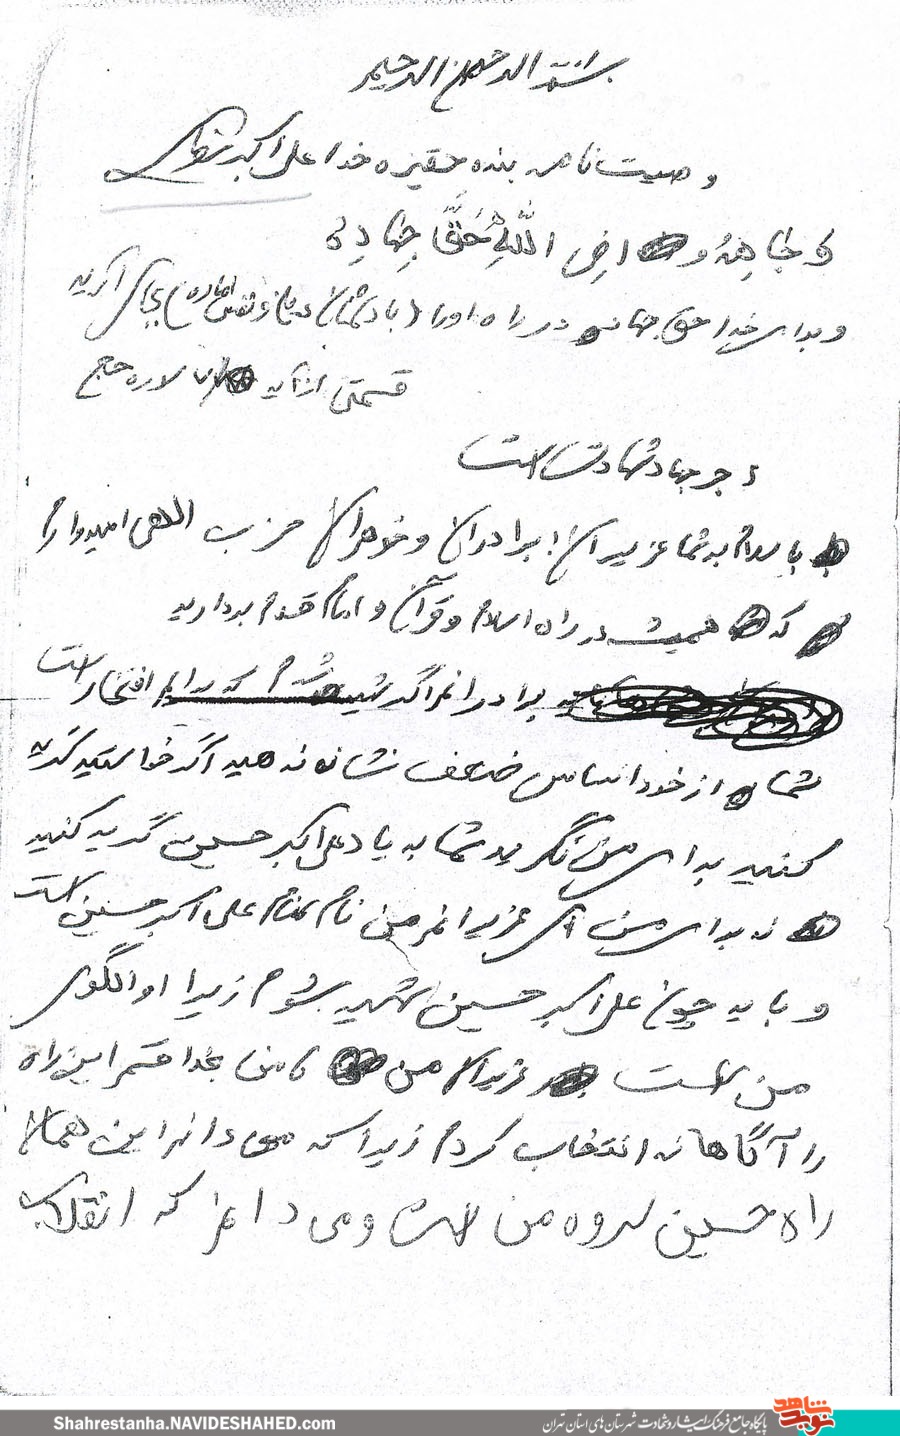 بسم الله الرحمن الرحیم
وصیت نامه بنده حقیره خدا علی اکبر
وَ جاهِدُ و افِی اللّٰهِ حَقَّ جِهادِه
و برای خدا حق جهاد در راه اورا (با دشمنان دین و نفس اماره) بجای آرید
قسمتی از آیه ۷۸ سوره حج
اجر جهاد شهادت است
با سلام به شما عزیزان! برادران و خوهران حزب اللهی امیدوارم
که همیشه در راه اسلام و قرآن و امام قدم بردارید
برادرانم اگر شهید شدم که برایم افتخار است
شما از خود احساس ضعف نشان ندهید اگر خواستید گریه
کنید برای من نگریید شما به یاد علی اکبر حسین گریه کنید
نه برای من ای عزیزانم من نام همنام علی اکبر حسین است
و باید چون علی اکبر حسین شهید بشوم زیرا او الگوی
من است عزیزان من من بخدا قسم این راه
را آگاهانه انتخاب کردم زیرا که می دانم این همان
راه حسین سرور من است و می دانم که انقلاب
نوید شاهد
پایگاه جامع فرهنگ ایثار و شهادت شهرستان های استان تهران
Shahrestanha.NAVIDESHAHED.com